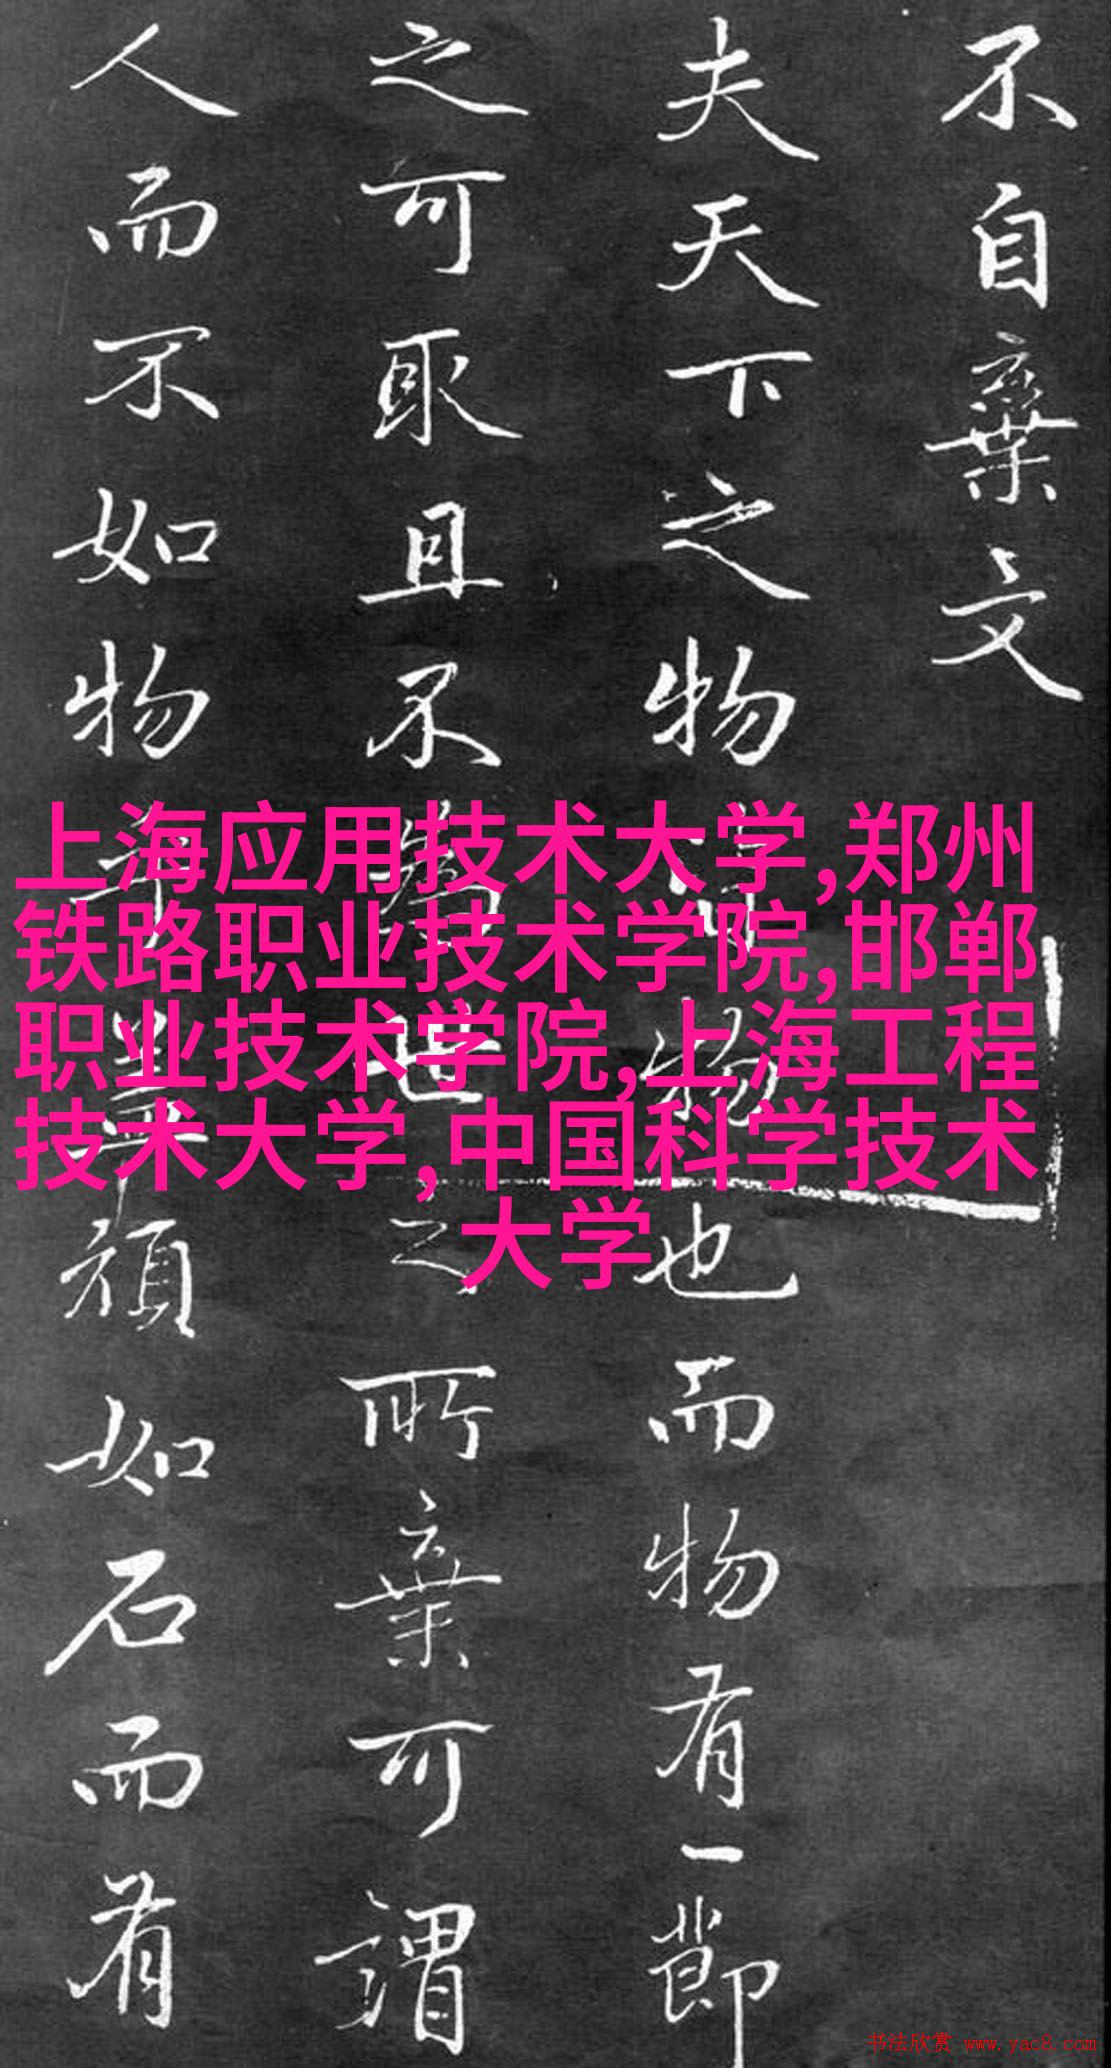 不自棄文
夫天下之物皆物也而物有一節
之可取且不為世之所棄可謂
人而不如物乎頑如石而有
上海应用技术大学,郑州
铁路职业技术学院,邯郸
职业技术学院,上海工程
技术大学,中国科学技术
大学
书法欣赏 www.yac8.com